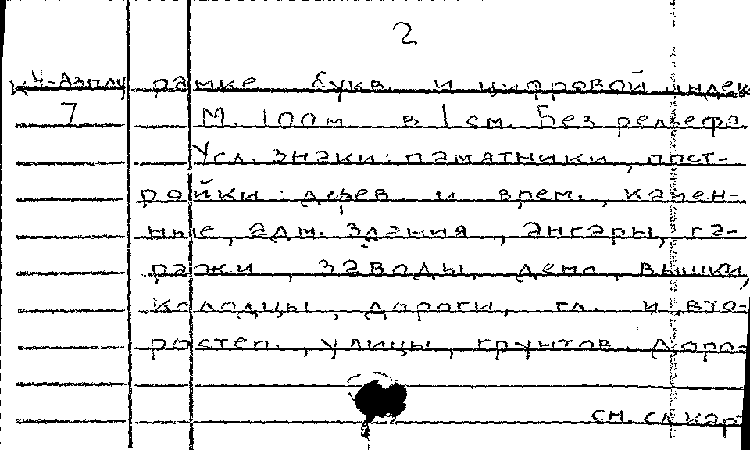 2
рамке букв. и цифровой индек
7 М. 100 м в 1 см. Без рельефа.
Усл. знаки: памятники, пост-
ройки: дерев. и врем., камен-
ные, адм. здания, ангары, га-
ражи, заводы, депо, вышки,
колодцы, дороги, гл. и вто-
ростеп., улицы, грунтов. доро-
см. сл. кар